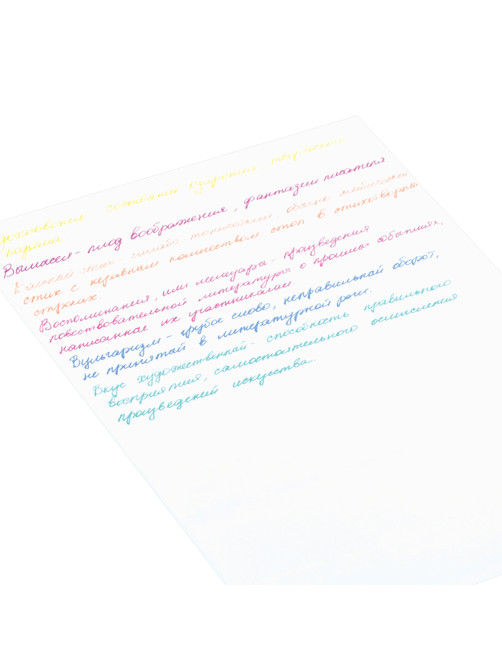 Вдохновение - состояние
Вымысел - плод воображения, фантазии писателя
стих с неравным количеством стоп в стихотворных
строках.
Воспоминания, или мемуары - произведения
повествовательной литературы о прошлых событиях,
написанные их участниками
Вульгаризм - грубое слово, неправильный оборот,
не принятый в литературной речи.
Вкус художественный - способность правильного
восприятия, самостоятельного осмысления
произведений искусства.